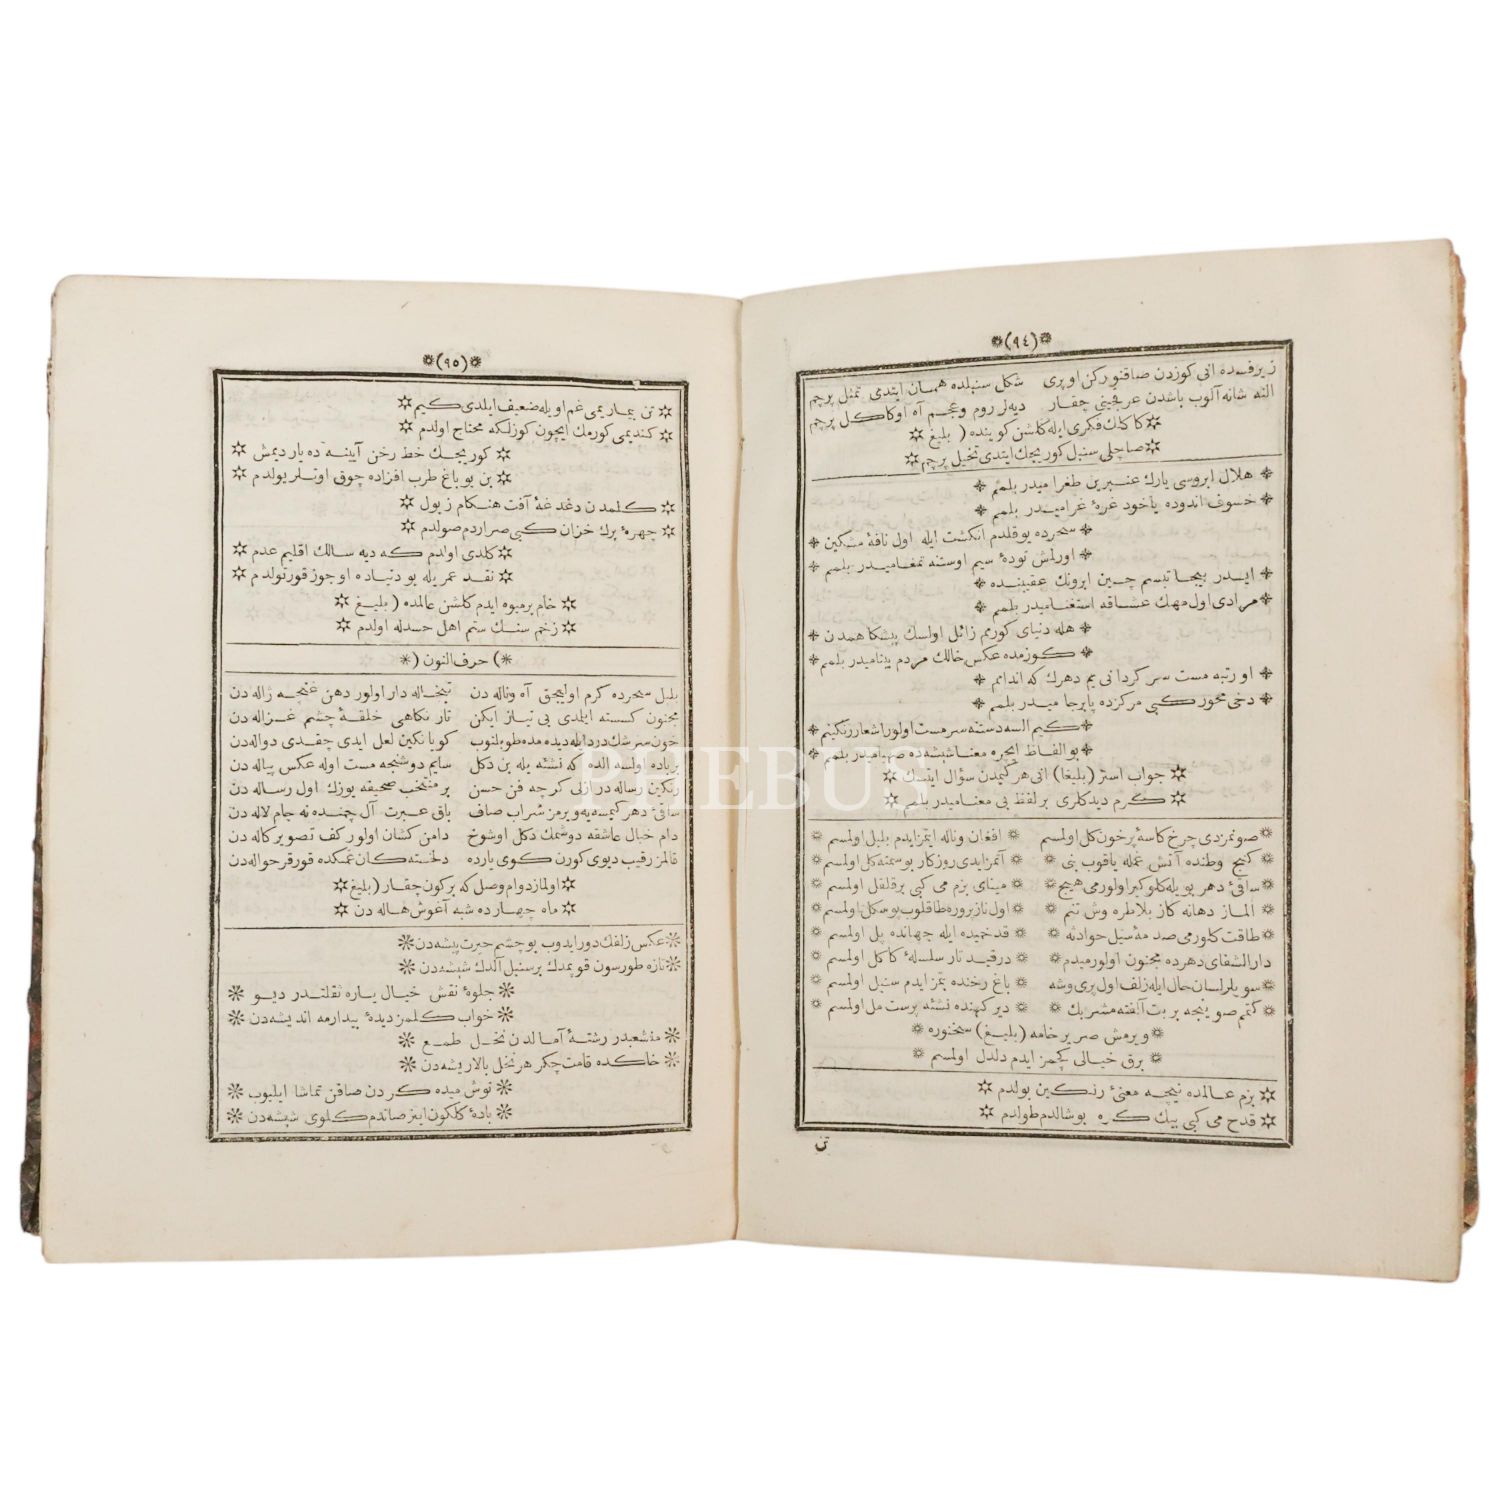 (٩٤)
زیرفسده انی کوزدن صاقنور کن اوپری شکل سنبلده همان ایتدی تمثل پرچم
النه شانه آلوب باشدن عرقچینی چقار دیه‌لر روم وعجم آه اوکاکل پرچم
کاکلك فکری ایله کلشن کوینده (بلیغ
صاچلی سنبل کوریجك ایتدی تخیل پرچم
هلال ابروسی یارك عنبرین طغرا میدر بلمم
خسوف اندوده یاخود غرهٔ غرا میدر بلمم
سحرده یوقلدم انکشت ایله اول نافهٔ مشکین
اورلمش تودهٔ سیم اوستنه تمغا میدر بلمم
ایدر بیجا تبسم چین ابرونك عقبینده
مرادی اول مهك عشاقه استغنا میدر بلمم
هله دنیای کورنم زائل اولسك پیشکا همدن
کوزمده عکس خالك مردم بینا میدر بلمم
او رتبه مست سر کردانی یم دهرك که اندانم
دخی محور کبی مرکزده پابرجا میدر بلمم
کیم السه دسته سرمست اولور اشعار رنکینم
بو الفاظ ایچره معنا شیشه‌ده صهبا میدر بلمم
جواب استر (بلیغا) انی هر کیمدن سؤال ایتسك
کرم دیدکلری بر لفظ بی معنا میدر بلمم
صونمزدی چرخ کاسهٔ پر خون کل اولمسم افغان وناله ایتمز ایدم بلبل اولمسم
کنج وطنده آتش غمله یاقوب بنی آتمز ایدی روزکار یوسمته کل اولمسم
ساقیٔ دهر بویله کلوکیر اولورمی هیچ مینای بزم می کبی پرقلقل اولمسم
الماز دهانه کاز بلاطره وش تنم اول ناز پروره طاقلوب بوسکل اولمسم
طاقت کتورمی صد مهٔ سیل حوادثه قد خمیده ایله جهانده پل اولمسم
دارالشفای دهرده مجنون اولورمیدم درقید تار سلسلهٔ کاکل اولمسم
سویلرلسان حال ایله زلف اول پری وشه باغ رخنده بتمز ایدم سنبل اولمسم
کتم صوینجه بر بت آلفته مشربك دیر کهنده نشئه پرست مل اولمسم
ویرمش صریر خامه (بلیغ) سخنوره
برق خیالی کچمز ایدم دلدل اولمسم
بزم عالمده نیجه معنیٔ رنکین بولدم
قدح می کبی بیك کره بوشالدم طولدم
تن
(٩٥)
تن بیماریمی غم اویله ضعیف ایلدی کیم
کندیمی کورمك ایچون کوزلکه محتاج اولدم
کوریجك خط رخن آیینه ده یار دیمش
بن بو باغ طرب افزاده چوق اوتلر یولدم
کلمدن دغدغهٔ آفت هنکام زبول
چهرهٔ برك خزان کبی صراردم صولدم
کلدی اولدم که دیه سالك اقلیم عدم
نقد عمریله بو دنیاده اوجوز قورتولدم
خام برمیوه ایدم کلشن عالمده (بلیغ
زخم سنك ستم اهل حسدله اولدم
) حرف النون (
بلبل سحرده کرم اولیجق آه وناله دن تبخاله دار اولور دهن غنچه ژاله دن
مجنون کسسته ایلدی بی نیاز ایکن تار نکاهی خلقهٔ چشم غزاله دن
خون سرشك درد ایله دیده مده طوپلنوب کویا نکین لعل ایدی چقدی دواله دن
بر باده اولسه الده که نشئه یله بن دکل سایم دوشنجه مست اوله عکس پیاله دن
رنکین رساله در ازلی کر چه فن حسن پر منتخب صحیفه یوزك اول رساله دن
ساقیٔ دهر کیمسه یه ویرمز شراب صاف باق عبرت آل چمنده نه جام لاله دن
دام خیال عاشقه دوشمك دکل اوشوخ دامن کشان اولور کف تصویر کاله دن
قالمز رقیب دیوی کورن کوی یارده دلخسته کان غمکده قورقر حواله دن
اولماز دوام وصل که بر کون چقار (بلیغ
ماه چهارده شبه آغوش هاله دن
عکس زلفك دور ایدوب بو چشم حیرت پیشه دن
تازه طورسون قویمدك بر سنبل آلدك شیشه دن
جلوهٔ نقش خیال یاره ثقلتدر دیو
خواب کلمز دیدهٔ بیدارمه اندیشه دن
منشعبدر رشتهٔ آمالدن نخل طمع
خاکده قامت چکر هر نخل بالا ریشه دن
نوش میده کردن صاقن تماشا ایلیوب
بادهٔ کلکون اینر صاندم کلوی شیشه دن